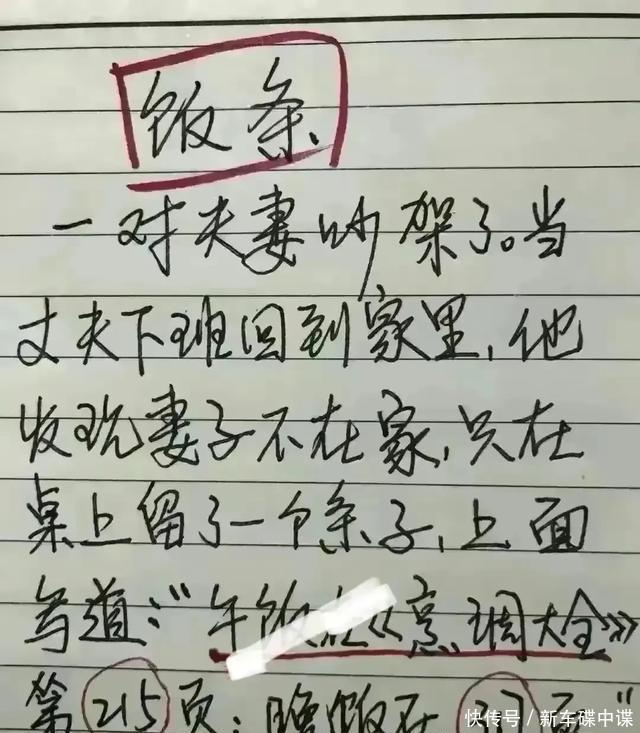 饭条
一对夫妻吵架了。当
丈夫下班回到家里，他
发现妻子不在家，只在
桌上留了一个条子，上面
写道："午饭在《烹调大全》
第215页；晚饭在 页"
快传号／新车碟中谍